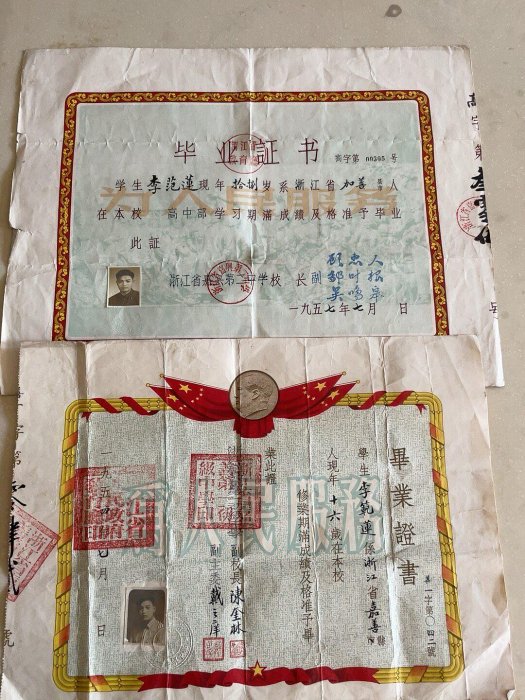 毕业证书
高字第 00305 号
学生李范蓮现年拾捌岁系浙江省加善县人
在本校 高中部学习期滿成绩及格准予毕业
此证
浙江省嘉
第二中学校 长
副
一九五七年七月 日
为人民服务
畢業證書
字第〇四二號
學生李範蓮係浙江省嘉善縣
人現年十六歲在本校
修業期滿成績及格准予畢
業此證
副校長陳金
副主委戴
一九五
年七月 日
爲人民服務